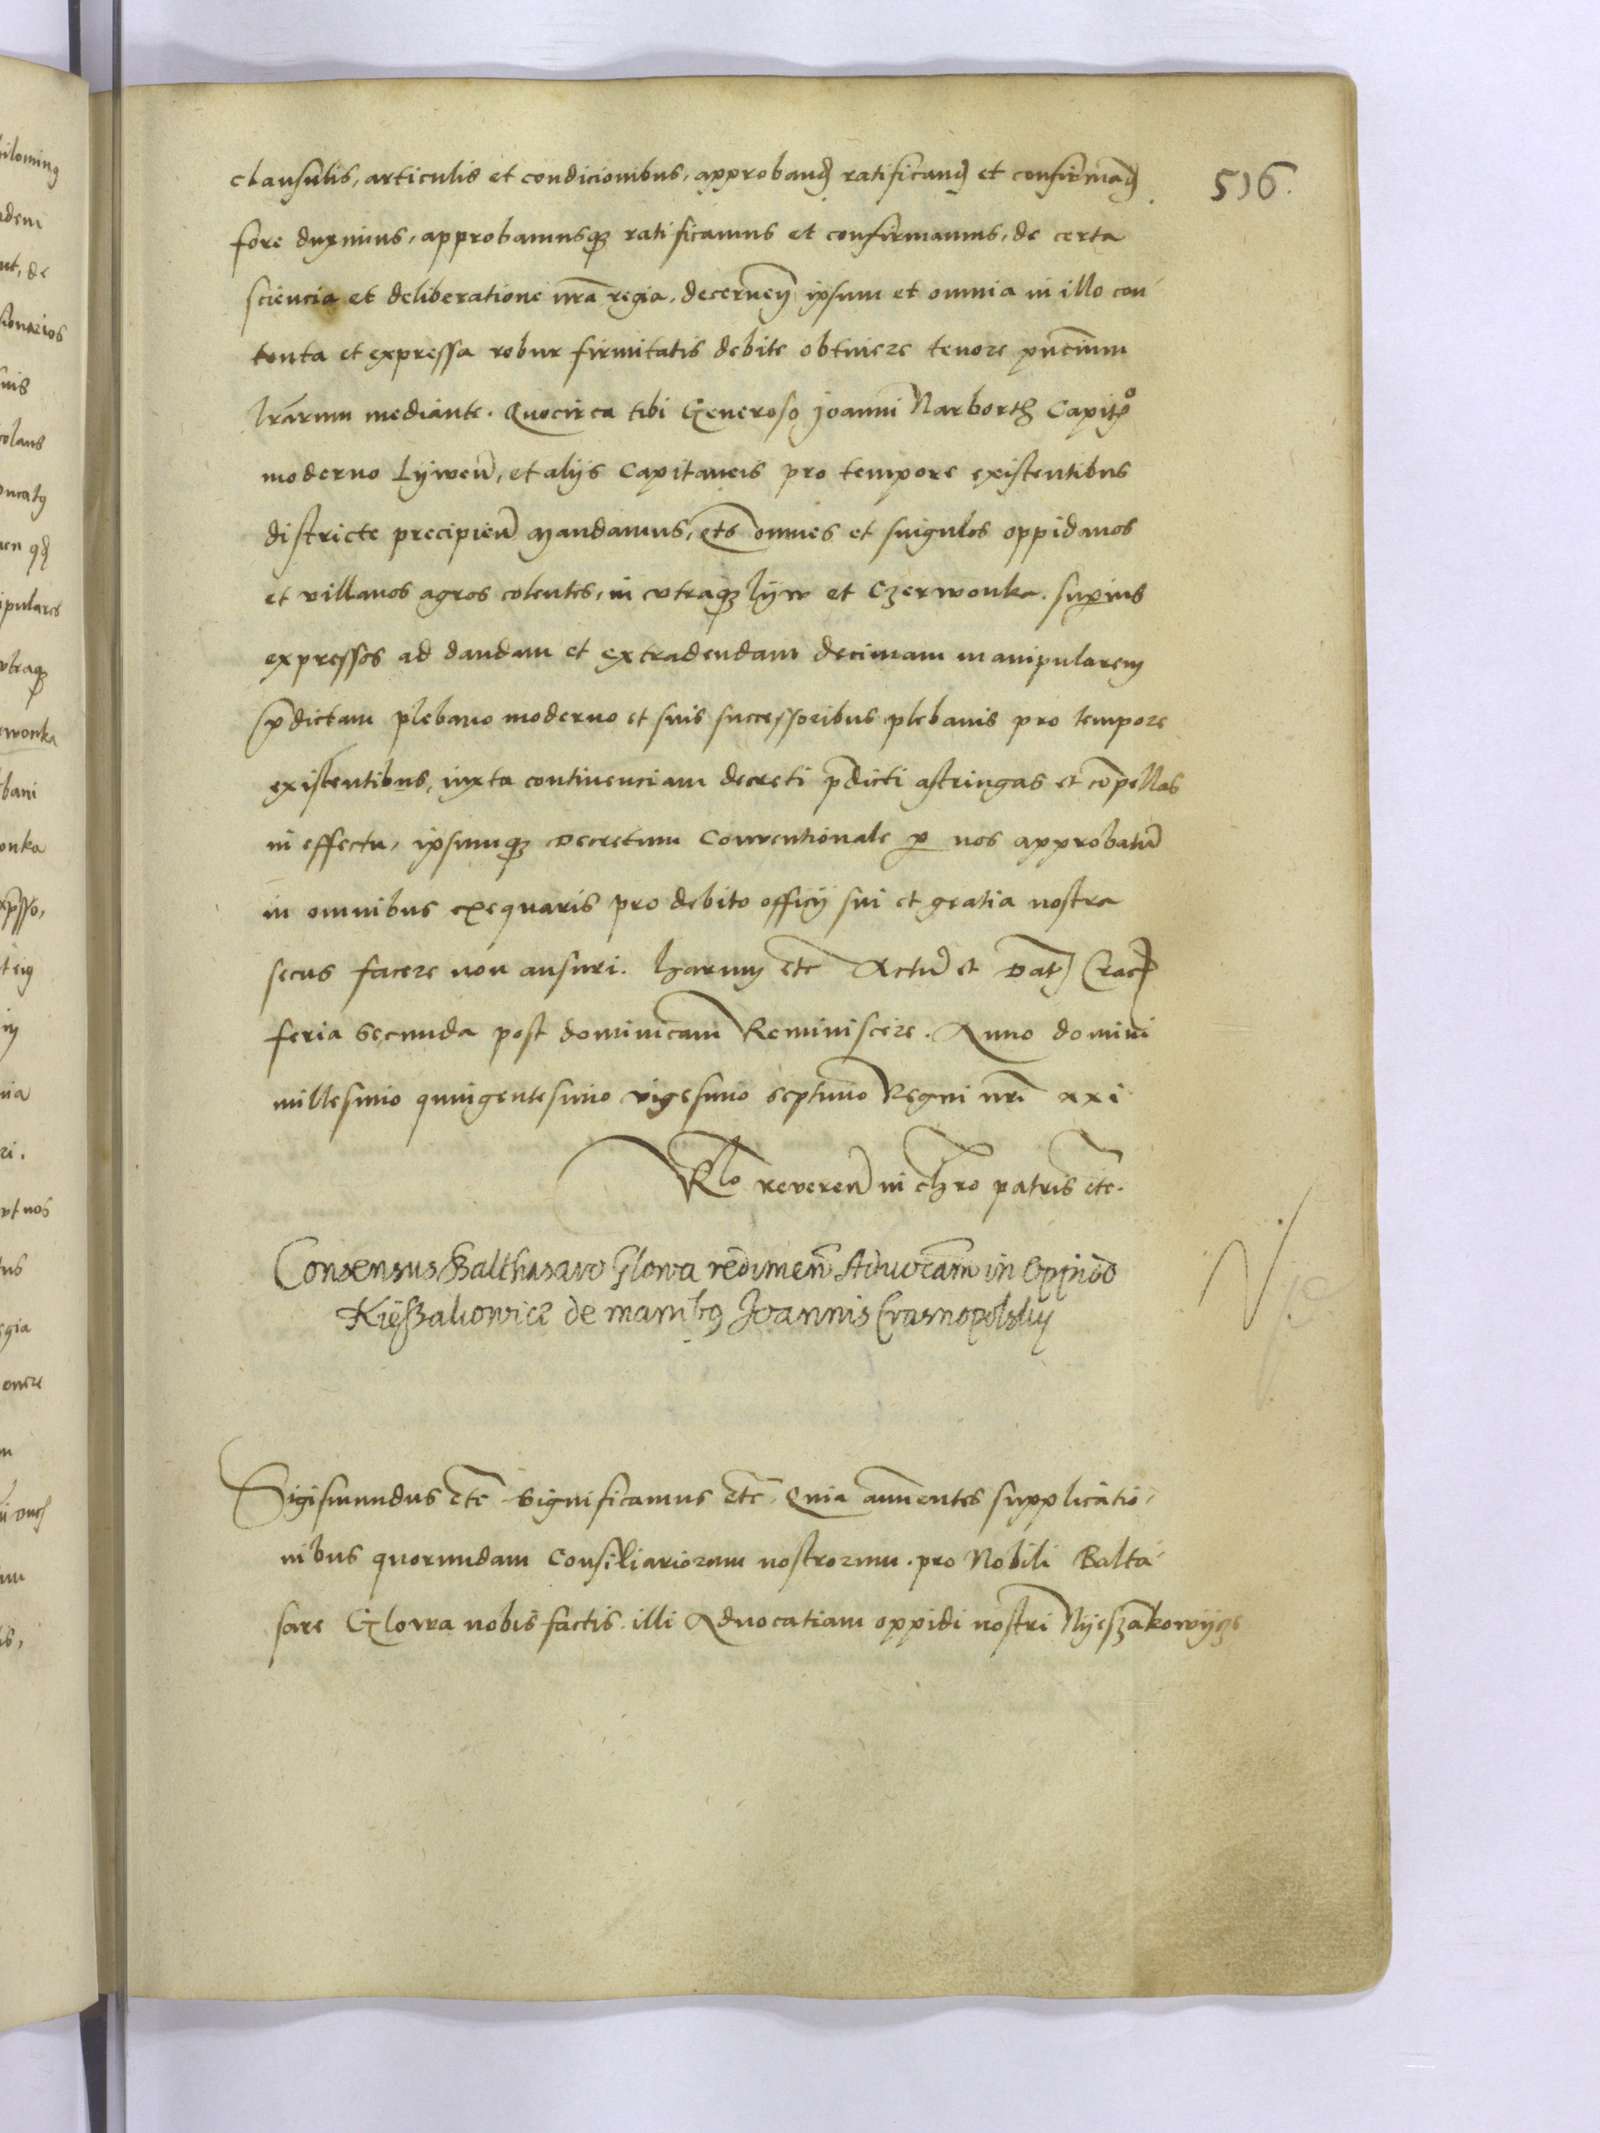 516.
clausulis, articulis et condicionibus, approband ratificand et confirmand
fore duximus, approbamusque ratificamus et confirmamus, de certa
sciencia et deliberatione nra regia, decernen ipsum et omnia in illo con-
tenta et expressa robur firmitatis debite obtinere tenore pncium
lrarum mediante. Quocirca tibi Generoso Joanni Narborth Capito
moderno Lywen, et alijs Capitaneis pro tempore existentibus
districte precipien mandamus, ets omnes et singulos oppidanos
et villanos agros colentes, in utraque lyw et Czerwonka. superius
expressos ad dandam et extradendam decimam manipularem
pdictam plebano moderno et suis successoribus plebanis pro tempore
existentibus, iuxta continenciam decreti pdicti astringas et compellas
in effectu, ipsumque Decretum Conventionale p nos approbatu
in omnibus exequaris pro debito officij sui et gratia nostra
secus facere non ausuri. harum etc Actu et Dat Crac
feria secunda post dominicam Reminiscere. Anno domini
millesimo quingentesimo vigesimo septimo Regni nri xxi
Rlo reveren in chro patris etc.
Consensus Balthasaro Glowa redimen Advocatiam in Oppido
Nieszakowicz de manibus Joannis Crasnopolsky
Sigismundus etc significamus etc. Quia annuentes supplicatio-
nibus quorundam Consiliariorum nostrorum. pro Nobili Balta-
sare Glowa nobis factis. illi Advocatiam oppidi nostri Nyeszakowycze